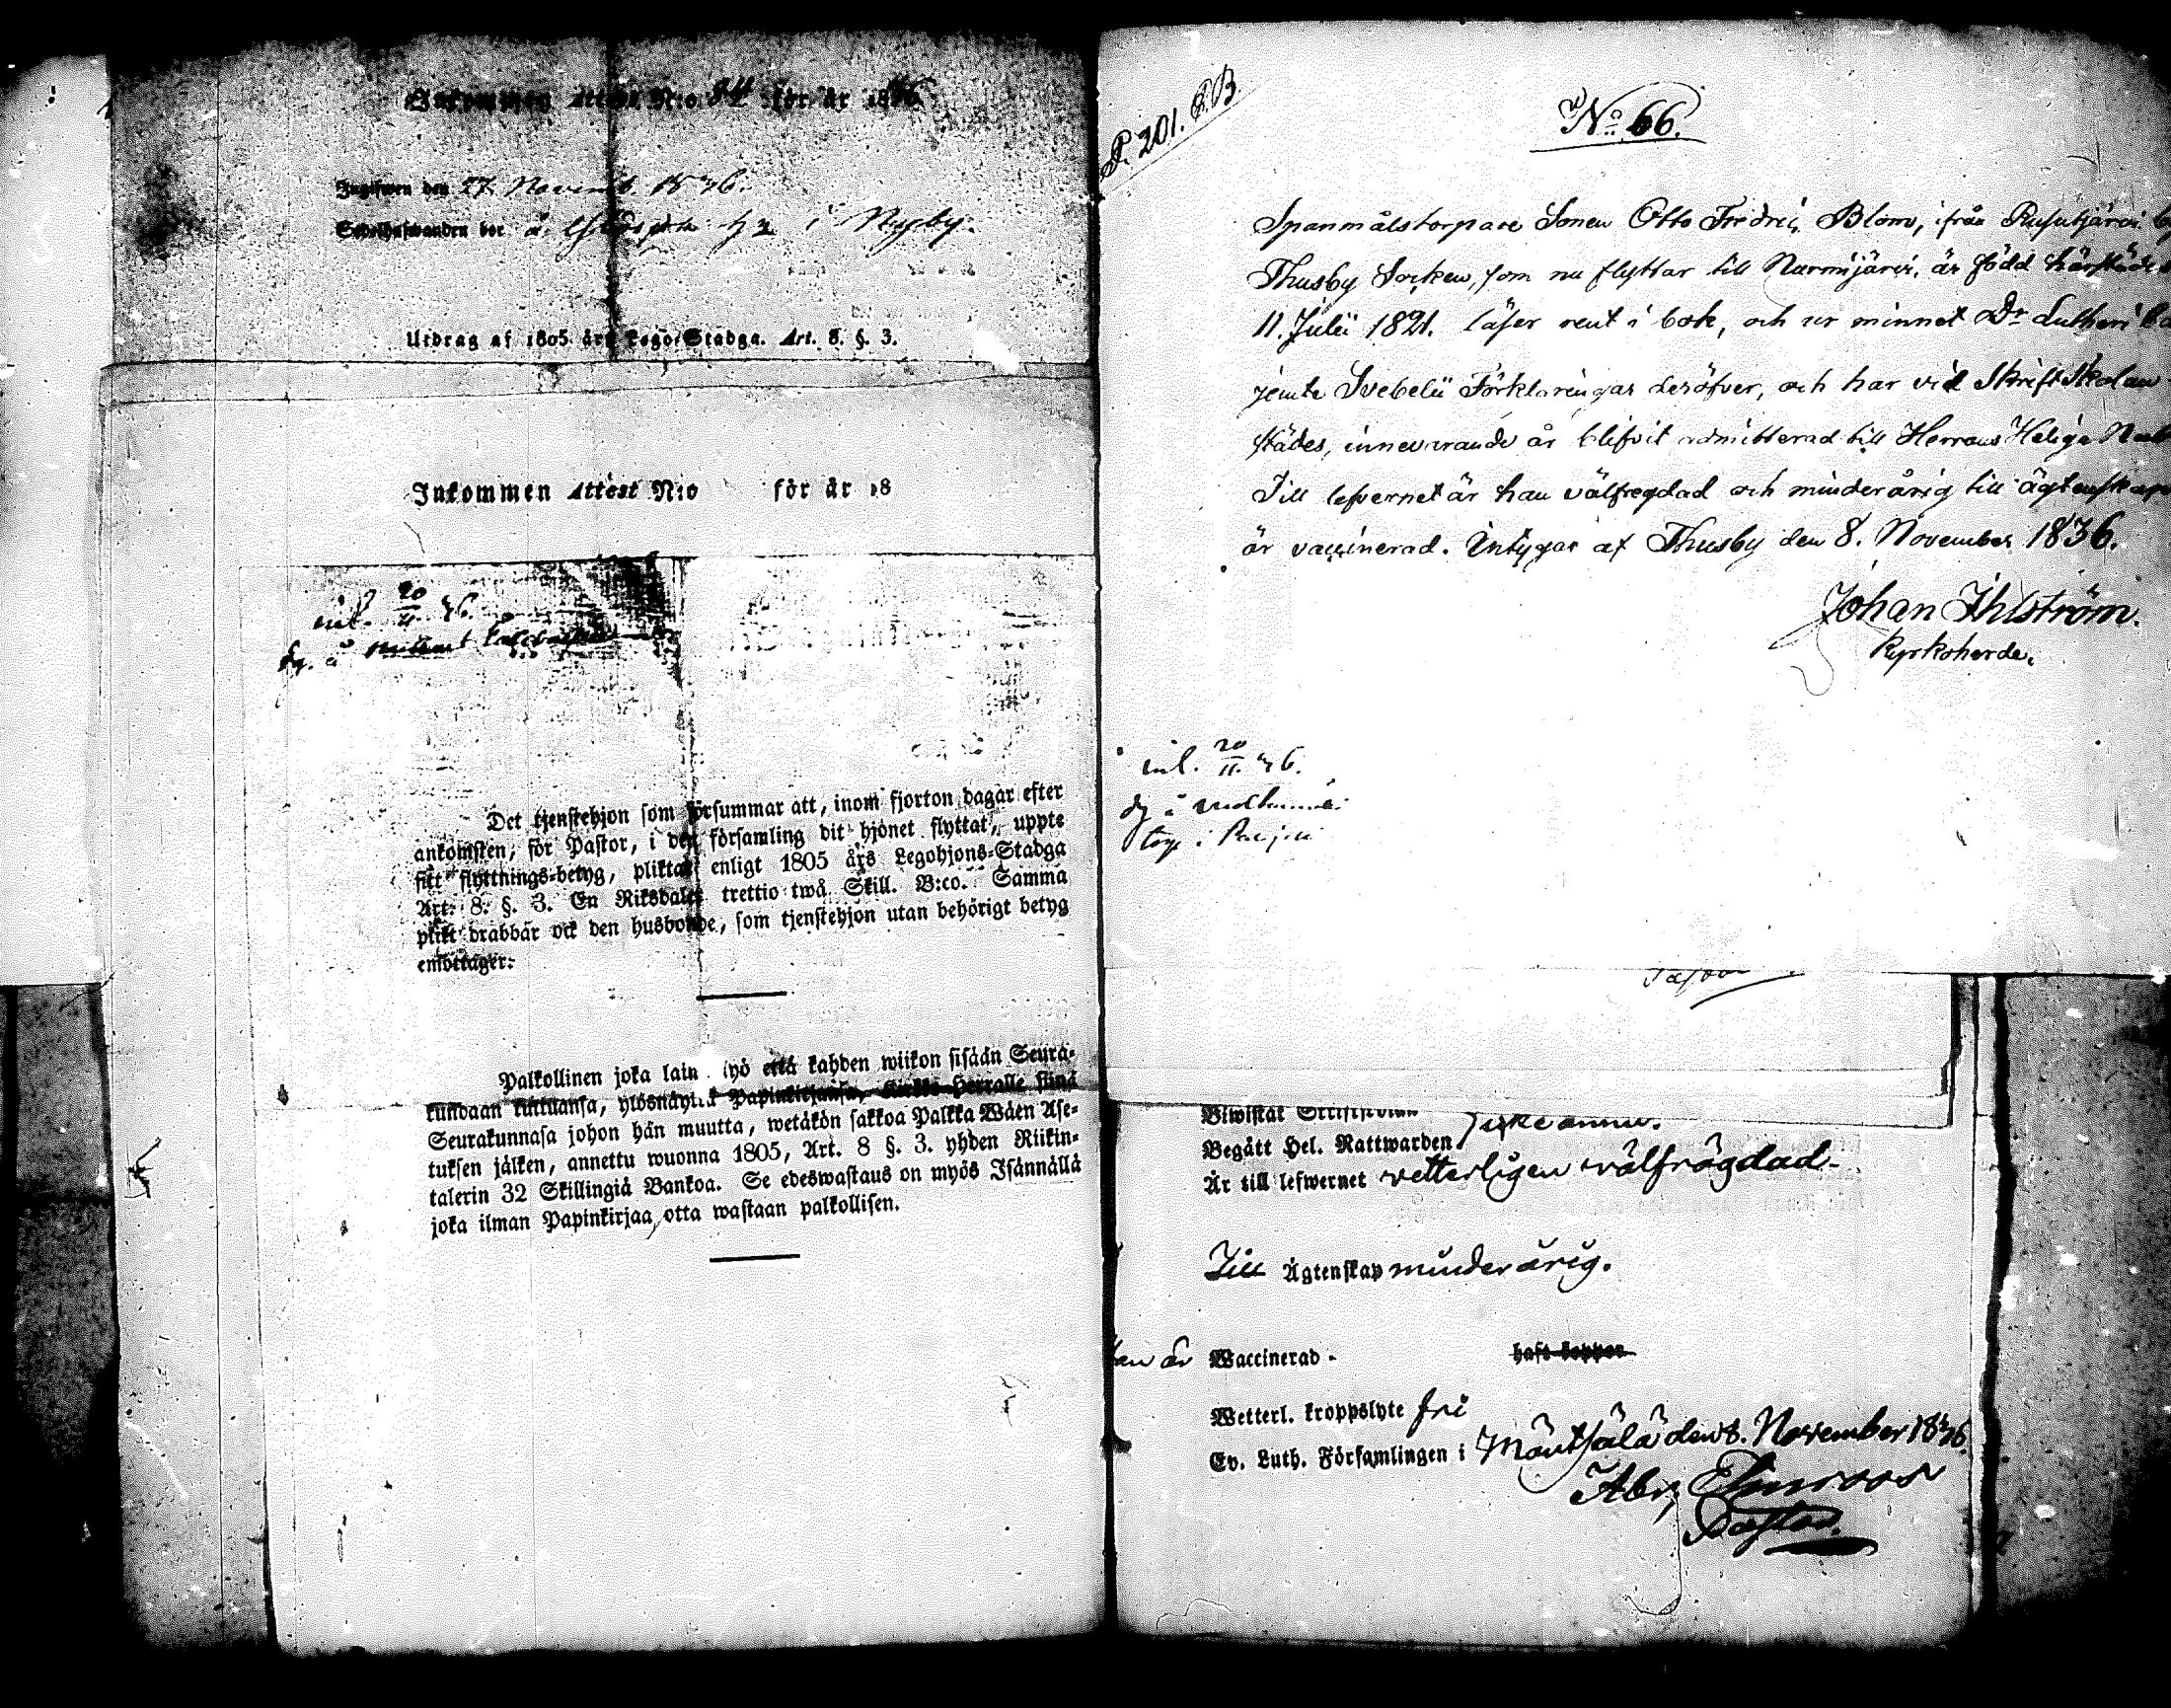 Inkommen Attest N:o 84 för år 1836
Ingifwen den 27. Novemb. 1836.
Sedelhafwanden bor å i Nygby.
Utdrag af 1805 års Lego-Stadga. Art. 8. §. 3.
Inkommen Attest N:o för år 18
inl. 20/11 36.
Det tjenstehjon som försummar att, inom fjorton dagar efter
ankomsten, för Pastor, i den församling dit hjonet flyttat, uppte
sitt flyttnings-betyg, pliktar enligt 1805 års Legohjons-Stadga
Art. 8. §. 3. En Riksdaler trettio twå Skill. B:co. Samma
plikt drabbar ock den husbonde, som tjenstehjon utan behörigt betyg
emottager.
Palkollinen joka lain lyö että kahden wiikon sisään Seura-
kundaan tultuansa, ylösnäyttä Papinkirjansa, Kirkko-Herralle siinä
Seurakunnasa johon hän muutta, wetäkön sakkoa Palkka Wäen Ase-
tuksen jälken, annettu wuonna 1805, Art. 8 §. 3. yhden Riikin-
talerin 32 Skillingiä Bankoa. Se edeswastaus on myös Isännällä
joka ilman Papinkirjaa otta wastaan palkollisen.
P. 201. R.B
No 66.
Spanmålstorpare Sonen Otto Fredric Blom, ifrån Rusutjärvi
Thusby Socken, som nu flyttar till Nurmijärvi, är född härstädes
11. Julii 1821. läser rent i bok, och ur minnet Dr Lutheri
jemte Svebelii Förklaringar deröfver, och har vid Skriftskolan
städes, innevarande år blifvit admitterad till Herrans Heliga
Till lefvernet är han välfregdad och minderårig till ägtenskap
är vaccinerad. Intygar af Thusby den 8. November 1836.
Johan Ihlström.
Kyrkoherde.
inl. 20/11. 36.
Pastor
Biwistat
Begått Hel. Nattwarden
Är till lefwernet vetterligen välfrägdad.
Till Ägtenskap minderårig.
Han är Waccinerad. haft koppor
Wetterl. kroppslyte fri
Ev. Luth. Församlingen i Mäntsälä den 8. November 1836.
Abr. Elmroos
Pastor.